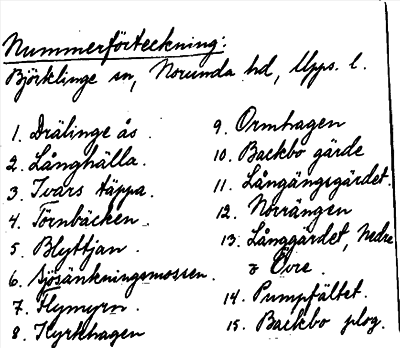 Nummerförteckning:
Björklinge sn, Norunda hd, Upps. l.
1. Drälinge ås.
2. Långhälla.
3. Ivars täppa.
4. Törnbäcken.
5. Blyttjan.
6. Sjösänkningsmossen.
7. Flymyrn.
8. Kyrkhagen
9. Ormhagen
10. Backbo gärde
11. Långängsgärdet.
12. Norrängen
13. Långgärdet, Nedre
& Övre.
14. Pumpfältet.
15. Backbo plog.